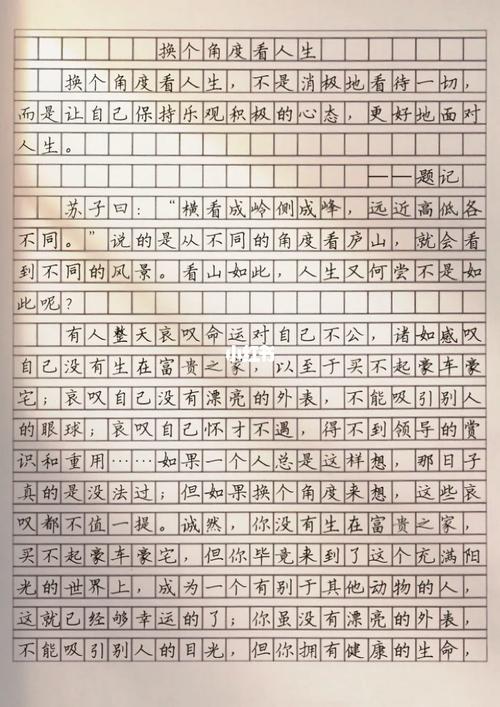 换个角度看人生
换个角度看人生，不是消极地看待一切，
而是让自己保持乐观积极的心态，更好地面对
人生。
——题记
苏子曰：“横看成岭侧成峰，远近高低各
不同。”说的是从不同的角度看庐山，就会看
到不同的风景。看山如此，人生又何尝不是如
此呢？
有人整天哀叹命运对自己不公，诸如感叹
小红书
自己没有生在富贵之家，以至于买不起豪车豪
宅；哀叹自己没有漂亮的外表，不能吸引别人
的眼球；哀叹自己怀才不遇，得不到领导的赏
识和重用……如果一个人总是这样想，那日子
真的是没法过；但如果换个角度来想，这些哀
叹都不值一提。诚然，你没有生在富贵之家，
买不起豪车豪宅，但你毕竟来到了这个充满阳
光的世界上，成为一个有别于其他动物的人，
这就已经够幸运的了；你虽没有漂亮的外表，
不能吸引别人的目光，但你拥有健康的生命，